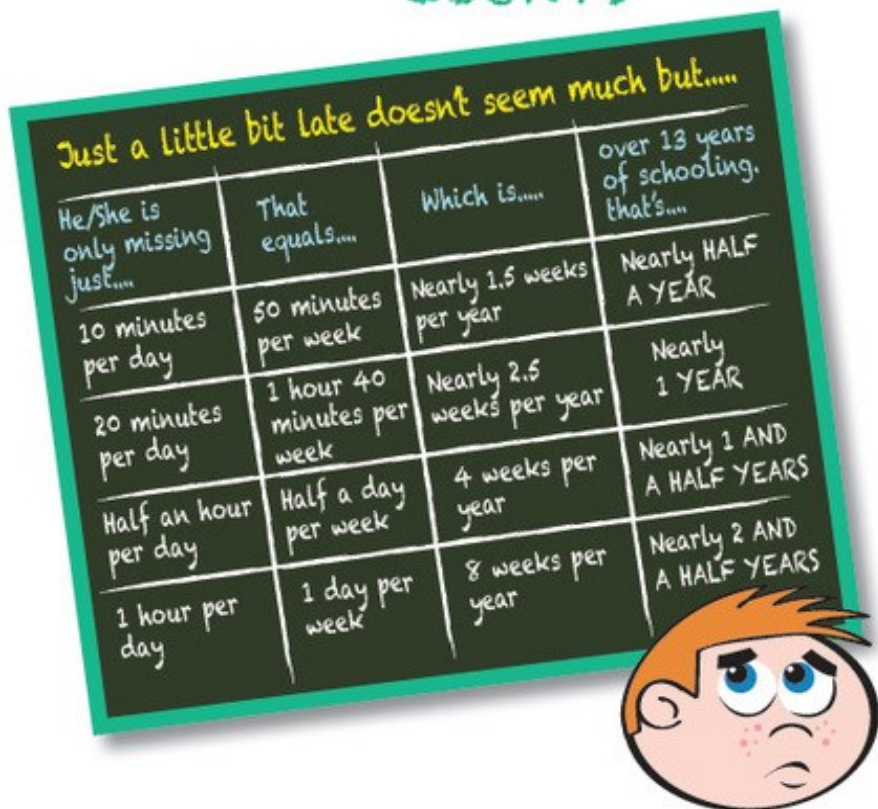 Just a little bit late doesn't seem much but.....
He/She is
only missing
just....
That
equals....
Which is.....
over 13 years
of schooling.
that's....
10 minutes
per day
50 minutes
per week
Nearly 1.5 weeks
per year
Nearly HALF
A YEAR
20 minutes
per day
1 hour 40
minutes per
week
Nearly 2.5
weeks per year
Nearly
1 YEAR
Half an hour
per day
Half a day
per week
4 weeks per
year
Nearly 1 AND
A HALF YEARS
1 hour per
day
1 day per
week
8 weeks per
year
Nearly 2 AND
A HALF YEARS